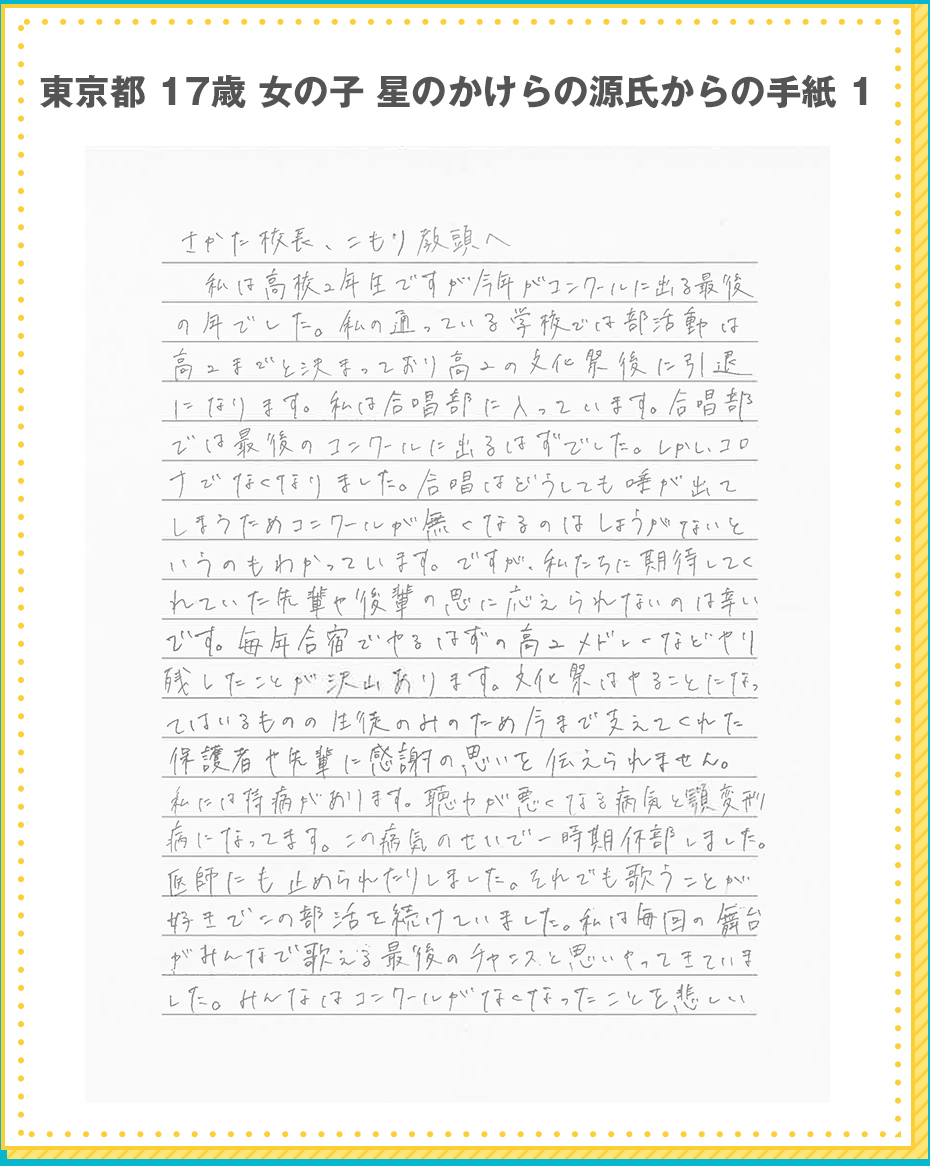 東京都 17歳 女の子 星のかけらの源氏からの手紙 1
さかた校長、こもり教頭へ
私は高校2年生ですが今年がコンクールに出る最後
の年でした。私の通っている学校では部活動は
高2までと決まっており高2の文化祭後に引退
になります。私は合唱部に入っています。合唱部
では最後のコンクールに出るはずでした。しかし、コロ
ナでなくなりました。合唱はどうしても唾が出て
しまうためコンクールが無くなるのはしょうがないと
いうのもわかっています。ですが、私たちに期待してく
れていた先輩や後輩の思に応えられないのは辛い
です。毎年合宿でやるはずの高2メドレーなどやり
残したことが沢山あります。文化祭はやることになっ
てはいるものの生徒のみのため今まで支えてくれた
保護者や先輩に感謝の思いを伝えられません。
私には持病があります。聴力が悪くなる病気と顎変形
病になってます。この病気のせいで一時期休部しました。
医師にも止められたりしました。それでも歌うことが
好きでこの部活を続けていました。私は毎回の舞台
がみんなで歌える最後のチャンスと思いやってきていま
した。みんなはコンクールがなくなったことを悲しい